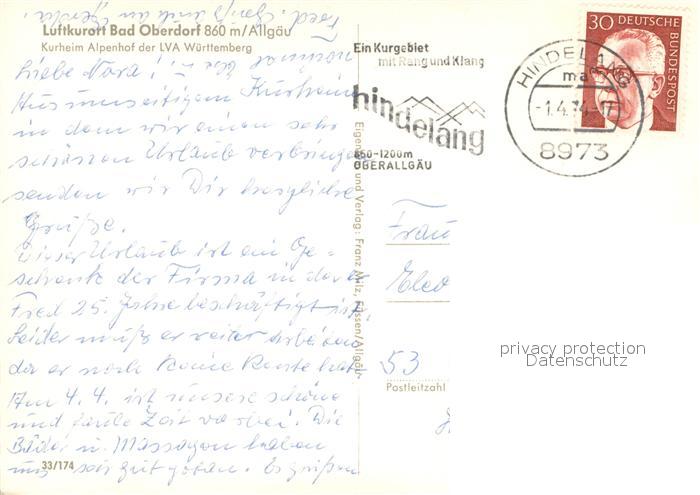 Luftkurort Bad Oberdorf 860 m/Allgäu
Kurheim Alpenhof der LVA Württemberg
Liebe Nora!
Aus unserigem Kurheim
in dem wir einen sehr
schönen Urlaub verbringen
senden wir Dir herzliche
Grüße.
Dieser Urlaub ist ein Ge-
schenk der Firma in der
Fred 25. Jahre beschäftigt ist.
Leider muß er weiter arbeiten
da er noch keine Rente hat.
Am 4.4. ist unsere schöne
und faule Zeit vorbei. Die
Bäder u. Massagen haben
uns sehr gut getan. Es grüßen
33/174
Eigentum und Verlag: Franz Milz, Füssen/Allgäu
Ein Kurgebiet
mit Rang und Klang
hindelang
850-1200m
OBERALLGÄU
HINDELANG
ma
-1.4.74-17
8973
30 DEUTSCHE
BUNDESPOST
Frau
53
Postleitzahl
privacy protection
Datenschutz